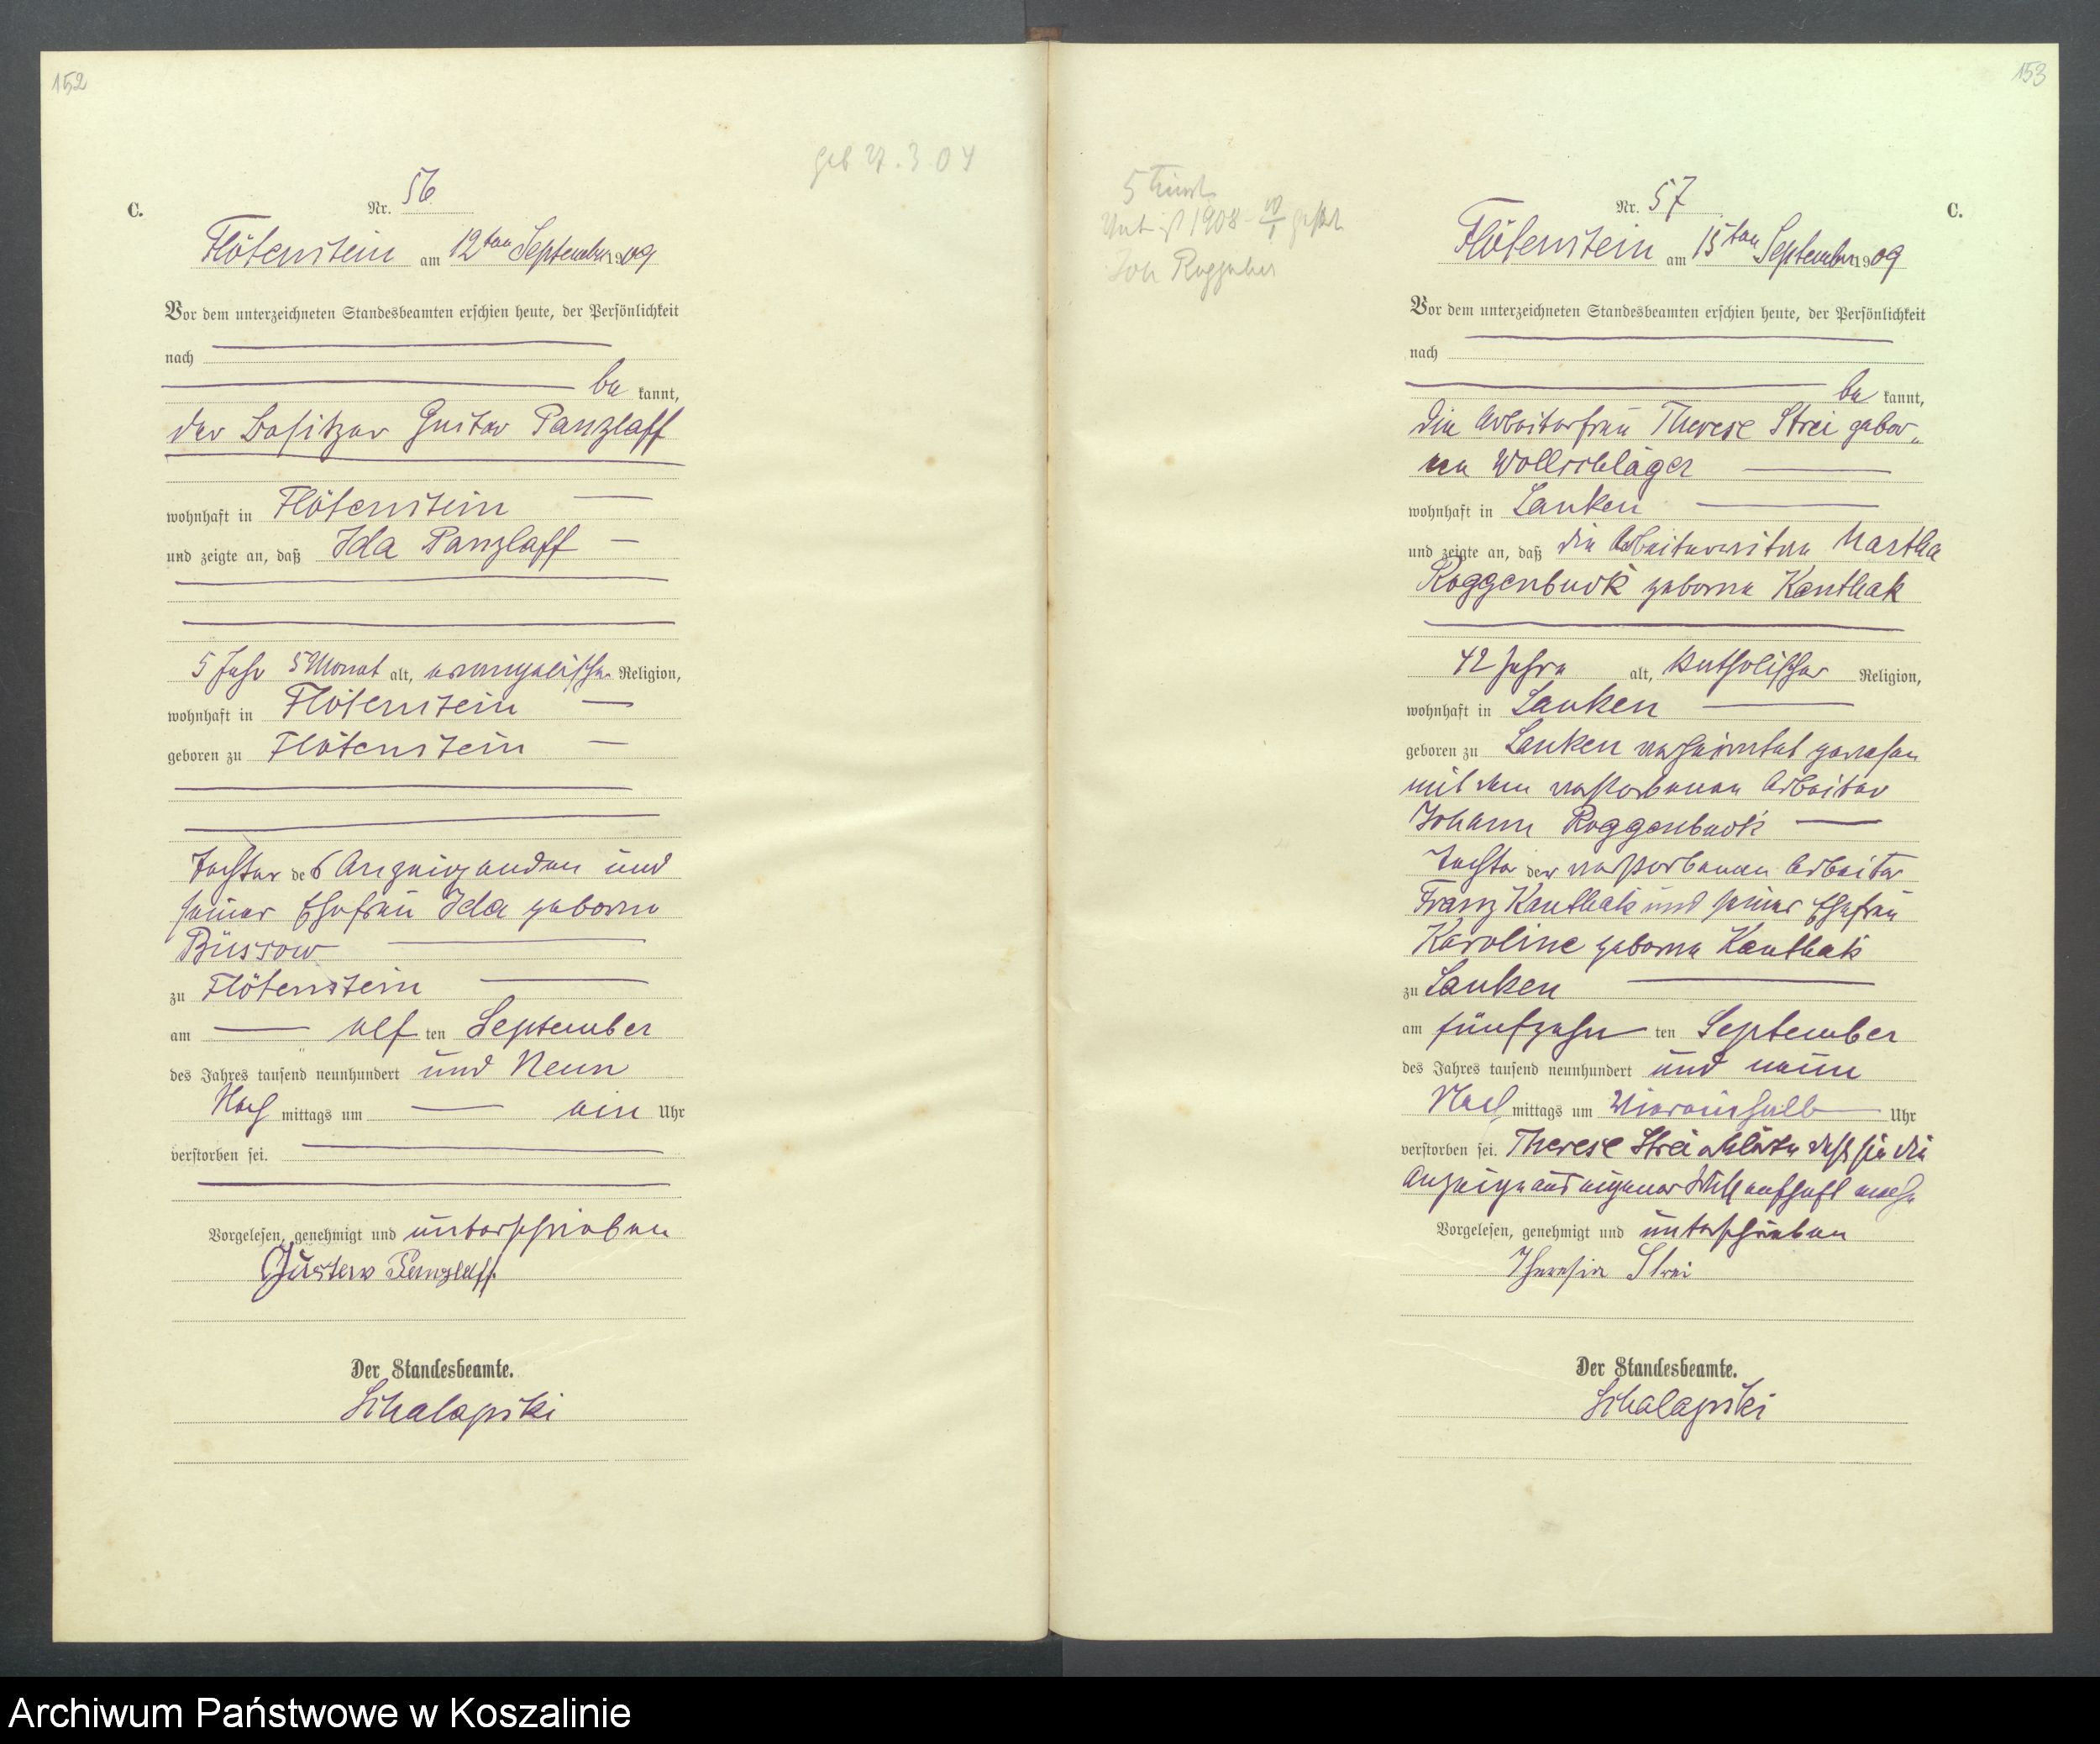 152
geb 27.3.04
C.
Nr. 56
Flötenstein am 12ten September 1909
Vor dem unterzeichneten Standesbeamten erschien heute, der Persönlichkeit
nach
be kannt,
der Besitzer Gustav Panzlaff
wohnhaft in Flötenstein
und zeigte an, daß Ida Panzlaff
5 Jahr 5 Monat alt, evangelischer Religion,
wohnhaft in Flötenstein
geboren zu Flötenstein
Tochter des Anzeigenden und
seiner Ehefrau Ida geborne
Büssow
zu Flötenstein
am elf ten September
des Jahres tausend neunhundert und Neun
Nach mittags um ein Uhr
verstorben sei.
Vorgelesen, genehmigt und unterschrieben
Gustav Panzlaff
Der Standesbeamte.
Schalapski
153
5
1908
Joh
C.
Nr. 57
Flötenstein am 15ten September 1909
Vor dem unterzeichneten Standesbeamten erschien heute, der Persönlichkeit
nach
be kannt,
die Arbeiterfrau Therese Strei gebor„
ne Wollschläger
wohnhaft in Lanken
und zeigte an, daß die Arbeiterwitwe Martha
Roggenbuck geborne Kanthak
42 Jahre alt, katholischer Religion,
wohnhaft in Lanken
geboren zu Lanken verheiratet gewesen
mit dem verstorbenen Arbeiter
Johann Roggenbuck
Tochter der verstorbenen Arbeiter
Franz Kanthak und seiner Ehefrau
Karoline geborne Kanthak
zu Lanken
am fünfzehn ten September
des Jahres tausend neunhundert und neun
Nach mittags um Uhr
verstorben sei. Therese Strei erklärte daß sie die
Anzeige aus eigener mache
Vorgelesen, genehmigt und unterschrieben
Theresia Strei
Der Standesbeamte.
Schalapski
Archiwum Państwowe w Koszalinie